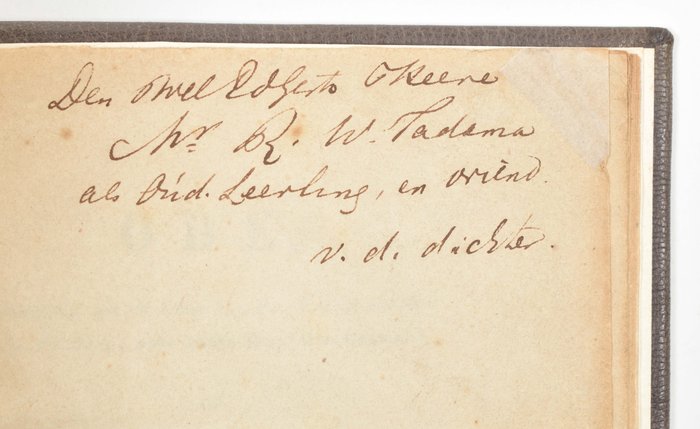 Den Wel EdGesto Heere
Mr R. W. Tadama
als Oud. Leerling, en vriend.
v. d. dichter.